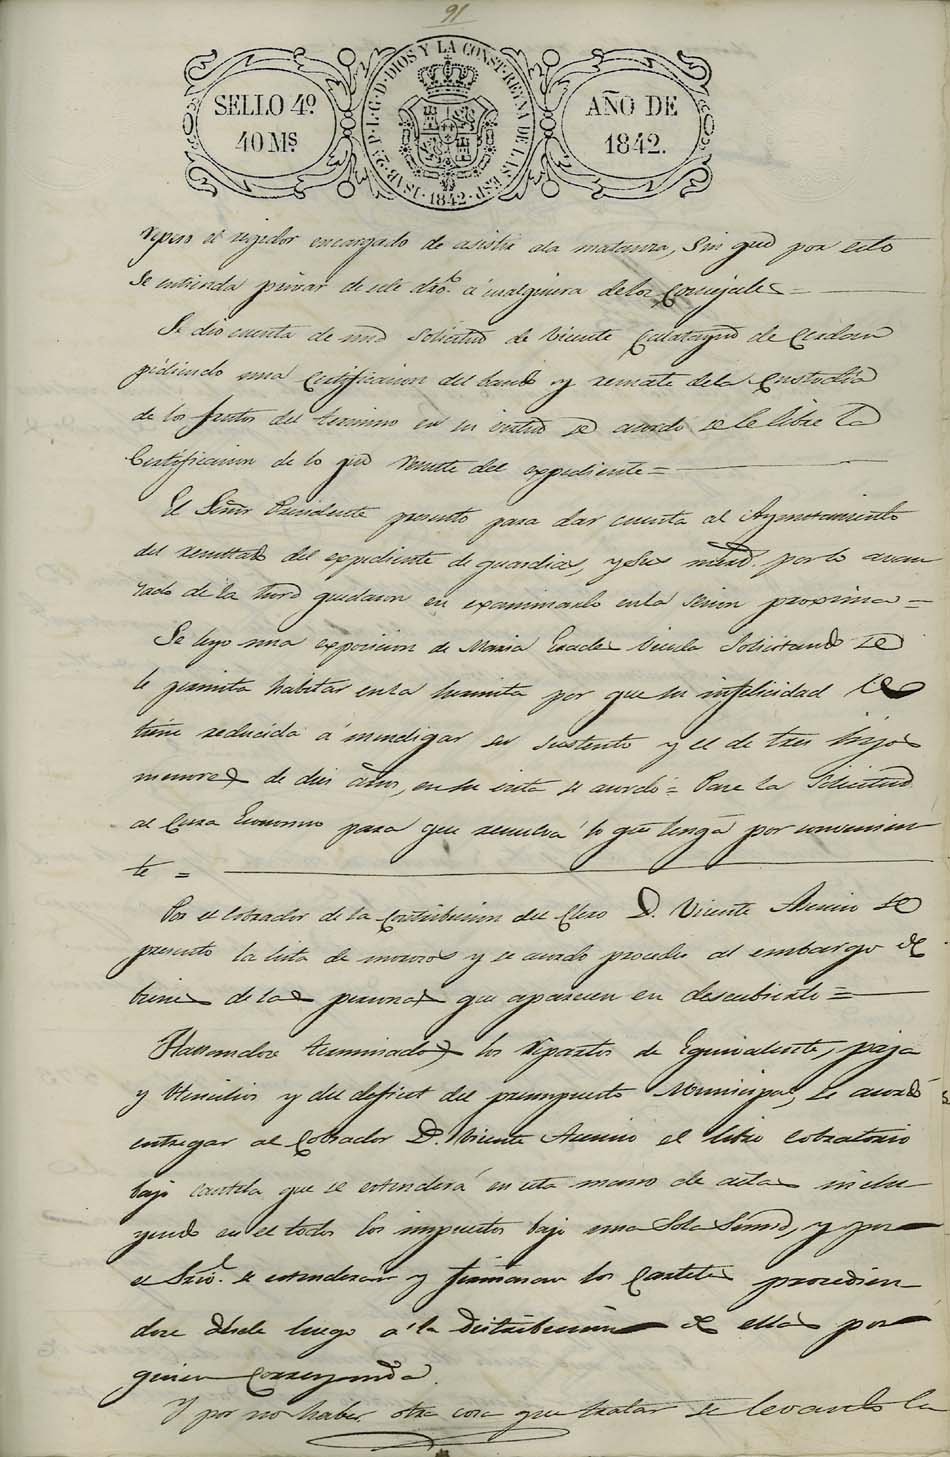 91
SELLO 4º
40 Ms
ISAB. 2ª P. L. G. D. DIOS Y LA CONST. REYNA DE LAS ESP. 1842
AÑO DE
1842.
el regidor encargado de asistir ala matanza, sin que por esto
se entienda privar de este dro. á cualquiera delos Concejales =
Se dio cuenta de una solicitud de Vicente Calatayud de
pidiendo una Certificacion del bando y remate dela Custodia
de los frutos del termino en su virtud se acordó se le libre la
Certificacion de lo que resulte del expediente =
El Señor Presidente presento para dar cuenta al Ayuntamiento
del resultado del expediente de guardias, y Sus por lo avan
zado de la hora quedaron en examinarlo enla sesion proxima =
Se leyo una exposicion de Maria Viuda Solicitando se
le permita habitar enla hermita por que su infelicidad le
tiene reducida á mendigar su sustento y el de tres hijos
menores de diez años, en su vista se acordó = Pase la Solicitud
al Cura Economo para que resuelva lo que tenga por convenien
te =
Por el Cobrador de la Contribucion del Clero D. Vicente Asensio se
presento la lista de morosos y se acordo proceder al embargo de
bienes de las personas que aparecen en descubierto =
Hallandose terminados los repartos de Equivalente, paja
y Utensilios y del deficit del presupuesto Municipal, se acordó
entregar al Cobrador D. Vicente Asensio el libro cobratorio
bajo cautela que se estenderá en esta mano de actas inclu
yendo en el todos los impuestos bajo una Sola Suma, y por
el Srio. se estenderan y firmaran las Carteles procedien
dose desde luego á la distribucion de ellas por
quien corresponda.
Y por no haber otra cosa que tratar se levantó la